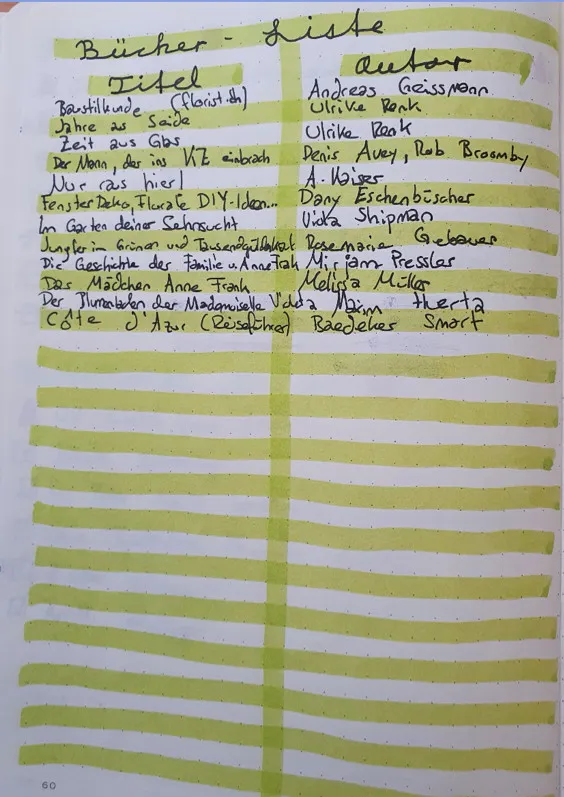 Bücher - Liste
Titel Autor
Baustilkunde (florist.ch) Andreas Geissmann
Jahre aus Seide Ulrike Renk
Zeit aus Glas Ulrike Renk
Der Mann, der ins KZ einbrach Denis Avey, Rob Broomby
Nur raus hier! A. Kaiser
Fenster Deko, Florale DIY-Ideen... Dany Eschenbüscher
Im Garten deiner Sehnsucht Viola Shipman
Jungfer im Grünen und Tausendgüldenkraut Rosemarie Gebauer
Die Geschichte der Familie v. Anne Frank Mirjam Pressler
Das Mädchen Anne Frank Melissa Müller
Der Blumenladen der Mademoiselle Violeta Máxim Huerta
Côte d'Azur (Reiseführer) Baedeker Smart
60